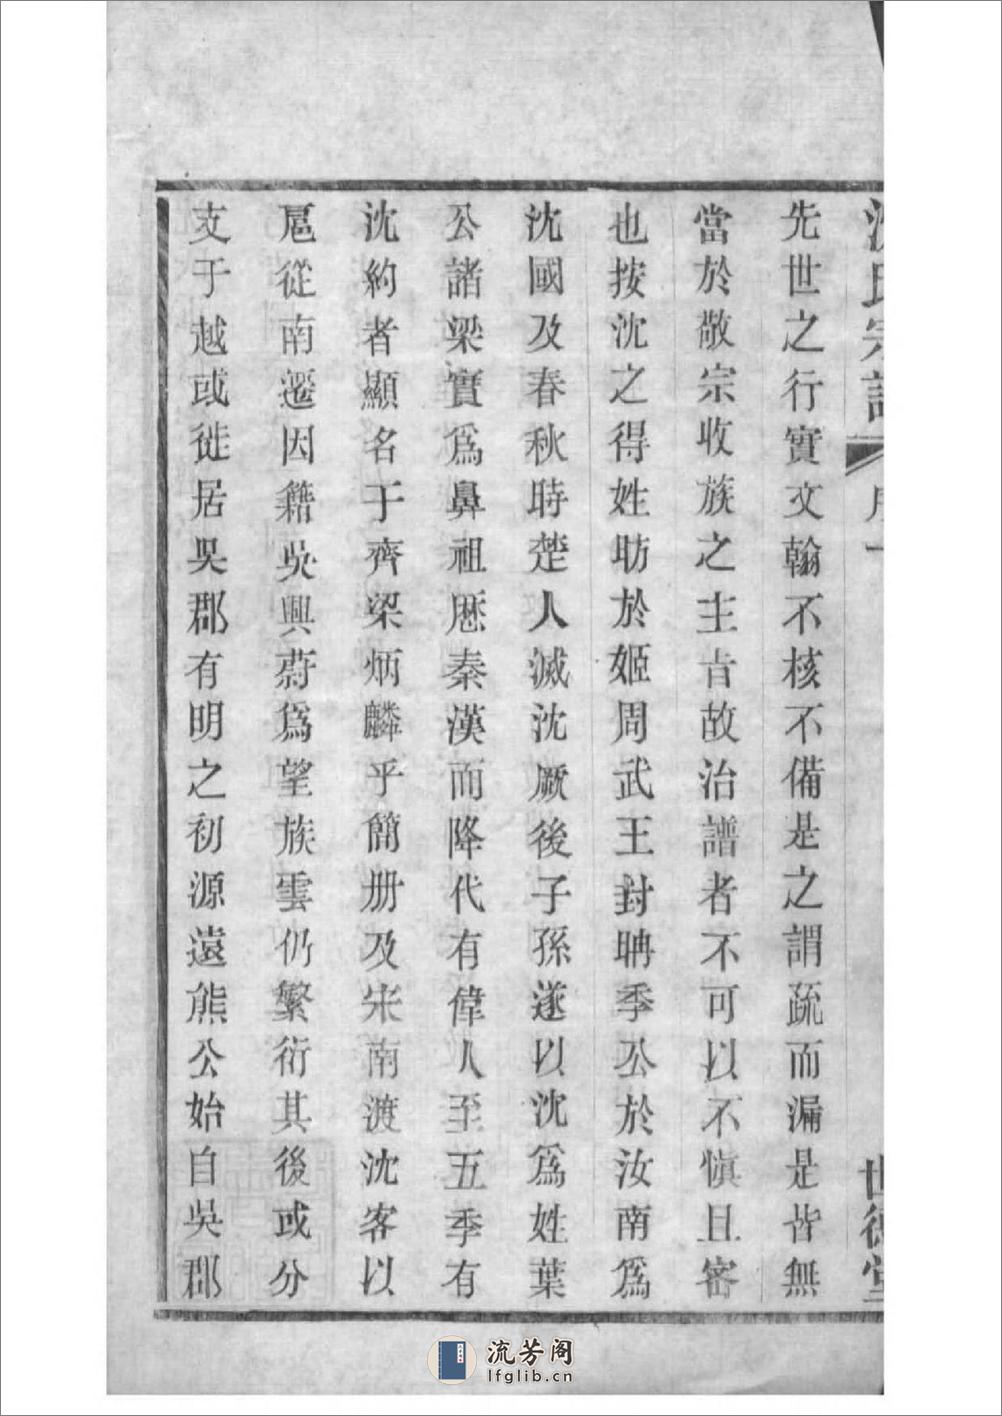 沈氏宗譜
序
世德堂
先世之行實文翰不核不備是之謂疏而漏是皆無
當於敬宗收族之主㫖故治譜者不可以不慎且審
也按沈之得姓昉於姬周武王封聃季公於汝南為
沈國及春秋時楚人滅沈厥後子孫遂以沈為姓葉
公諸梁實為鼻祖歷秦漢而降代有偉人至五季有
沈約者顯名于齊梁炳麟乎簡册及宋南渡沈客以
扈從南遷因籍吳興蔚為望族雲仍繁衍其後或分
支于越或徙居吳郡有明之初源遠熊公始自吳郡
流芳阁
lfglib.cn